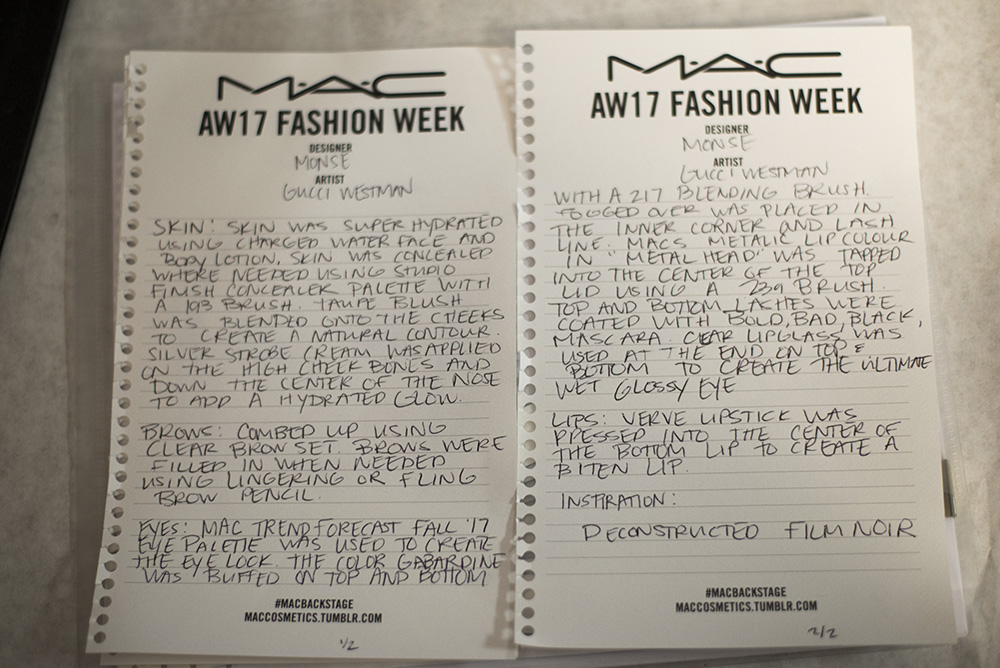 M·A·C
AW17 FASHION WEEK
DESIGNER
MONSE
ARTIST
GUCCI WESTMAN
SKIN: SKIN WAS SUPER HYDRATED
USING CHARGED WATER FACE AND
BODY LOTION, SKIN WAS CONCEALED
WHERE NEEDED USING STUDIO
FINISH CONCEALER PALETTE WITH
A 193 BRUSH. TAUPE BLUSH
WAS BLENDED ONTO THE CHEEKS
TO CREATE A NATURAL CONTOUR.
SILVER STROBE CREAM WAS APPLIED
ON THE HIGH CHEEK BONES AND
DOWN THE CENTER OF THE NOSE
TO ADD A HYDRATED GLOW.
BROWS: COMBED UP USING
CLEAR BROW SET. BROWS WERE
FILLED IN WHEN NEEDED
USING LINGERING OR FLING
BROW PENCIL.
EYES: MAC TREND FORECAST FALL '17
EYE PALETTE WAS USED TO CREATE
THE EYE LOOK. THE COLOR GABARDINE
WAS BUFFED ON TOP AND BOTTOM
#MACBACKSTAGE
MACCOSMETICS.TUMBLR.COM
1/2
M·A·C
AW17 FASHION WEEK
DESIGNER
MONSE
ARTIST
GUCCI WESTMAN
WITH A 217 BLENDING BRUSH.
FOGGED OVER WAS PLACED IN
THE INNER CORNER AND LASH
LINE. MACS METALIC LIP COLOUR
IN "METAL HEAD" WAS TAPPED
INTO THE CENTER OF THE TOP
LID USING A 239 BRUSH.
TOP AND BOTTOM LASHES WERE
COATED WITH BOLD, BAD, BLACK,
MASCARA. CLEAR LIPGLASS WAS
USED AT THE END ON TOP &
BOTTOM TO CREATE THE ULTIMATE
WET GLOSSY EYE
LIPS: VERVE LIPSTICK WAS
PRESSED INTO THE CENTER OF
THE BOTTOM LIP TO CREATE A
BITEN LIP.
INSTIRATION:
DECONSTRUCTED FILM NOIR
#MACBACKSTAGE
MACCOSMETICS.TUMBLR.COM
2/2